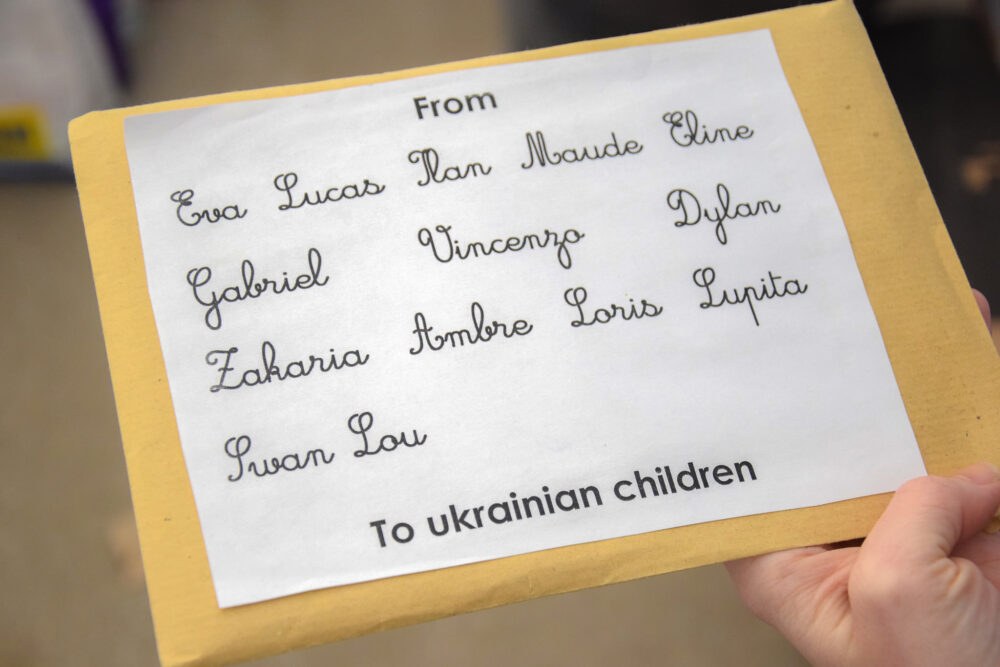 From
Eva Lucas Ilan Maude Eline
Gabriel Vincenzo Dylan
Zakaria Ambre Loris Lupita
Swan Lou
To ukrainian children